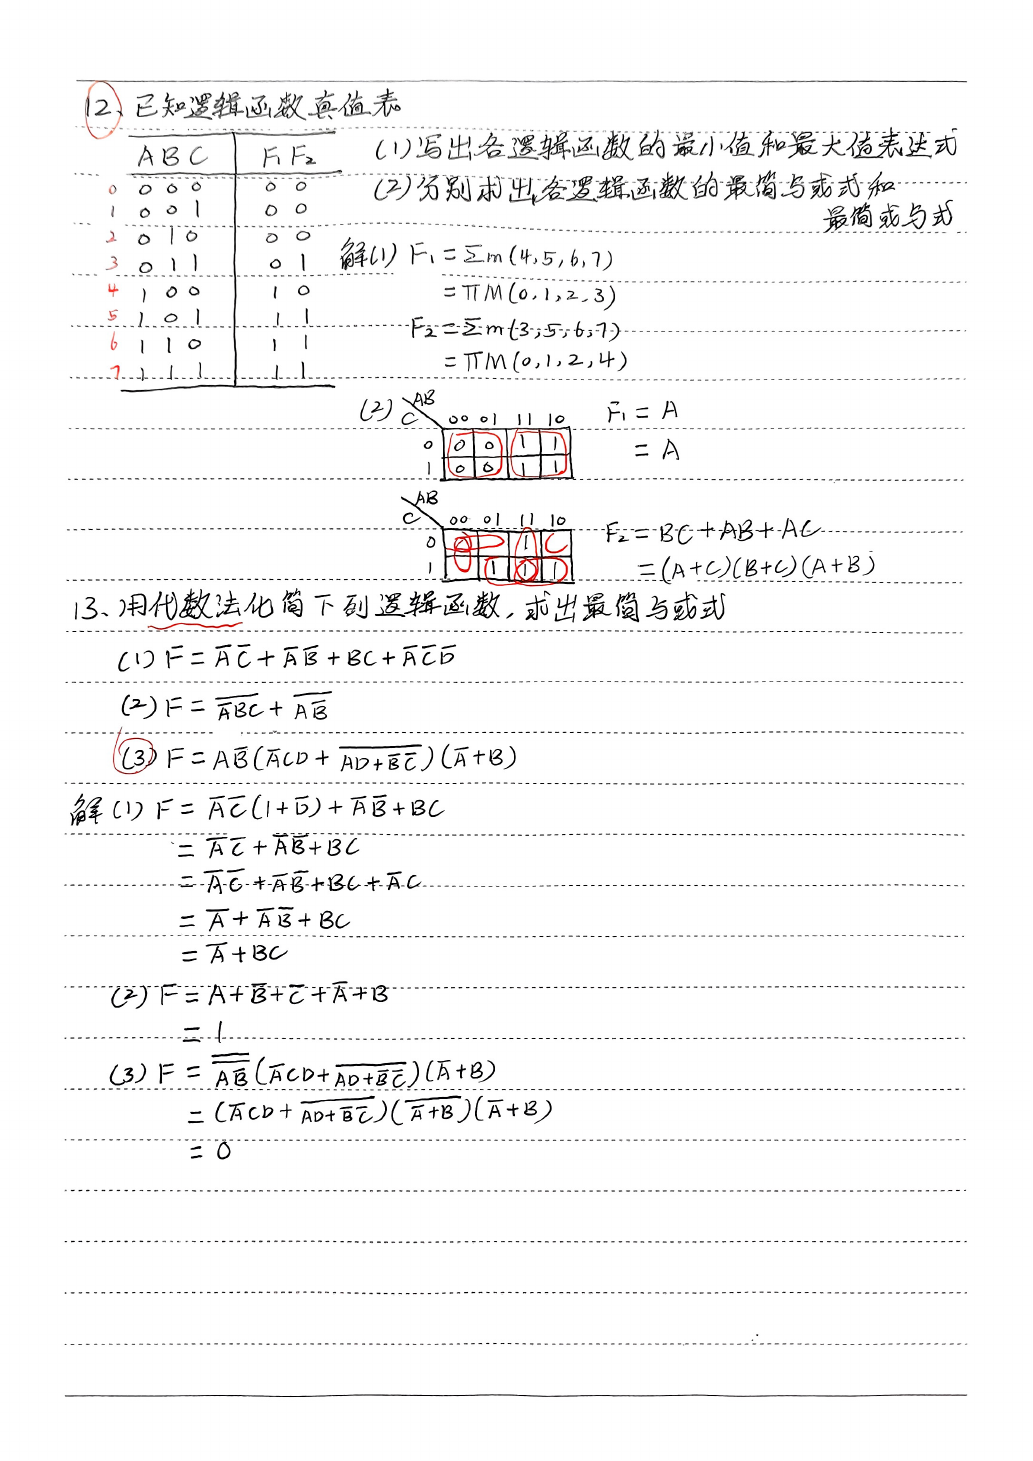 12、已知逻辑函数真值表
A B C F₁ F₂
0 0 0 0 0 0
1 0 0 1 0 0
2 0 1 0 0 0
3 0 1 1 0 1
4 1 0 0 1 0
5 1 0 1 1 1
6 1 1 0 1 1
7 1 1 1 1 1
(1)写出各逻辑函数的最小值和最大值表达式
(2)分别求出各逻辑函数的最简与或式和
最简或与式
解(1) F₁ = Σm(4,5,6,7)
= πM(0,1,2,3)
F₂ = Σm(3,5,6,7)
= πM(0,1,2,4)
(2) AB
C 00 01 11 10
0 0 0 1 1
1 0 0 1 1
F₁ = A
= A
AB
C 00 01 11 10
0 0 1
1 1 0 1
F₂ = BC + AB + AC
= (A+C)(B+C)(A+B)
13、用代数法化简下列逻辑函数,求出最简与或式
(1) F = A̅C̅ + A̅B̅ + BC + A̅C̅D̅
(2) F = \overline{A̅BC} + \overline{AB̅}
(3) F = AB̅(A̅CD + \overline{AD+B̅C̅})(A̅+B)
解(1) F = A̅C̅(1+D̅) + A̅B̅ + BC
= A̅C̅ + A̅B̅ + BC
= A̅C̅ + A̅B̅ + BC + A̅C
= A̅ + A̅B̅ + BC
= A̅ + BC
(2) F = A + B̅ + C̅ + A̅ + B
= 1
(3) F = \overline{\overline{AB̅}}(A̅CD + \overline{AD+B̅C̅})(A̅+B)
= (A̅CD + \overline{AD+B̅C̅})(\overline{A̅+B})(A̅+B)
= 0